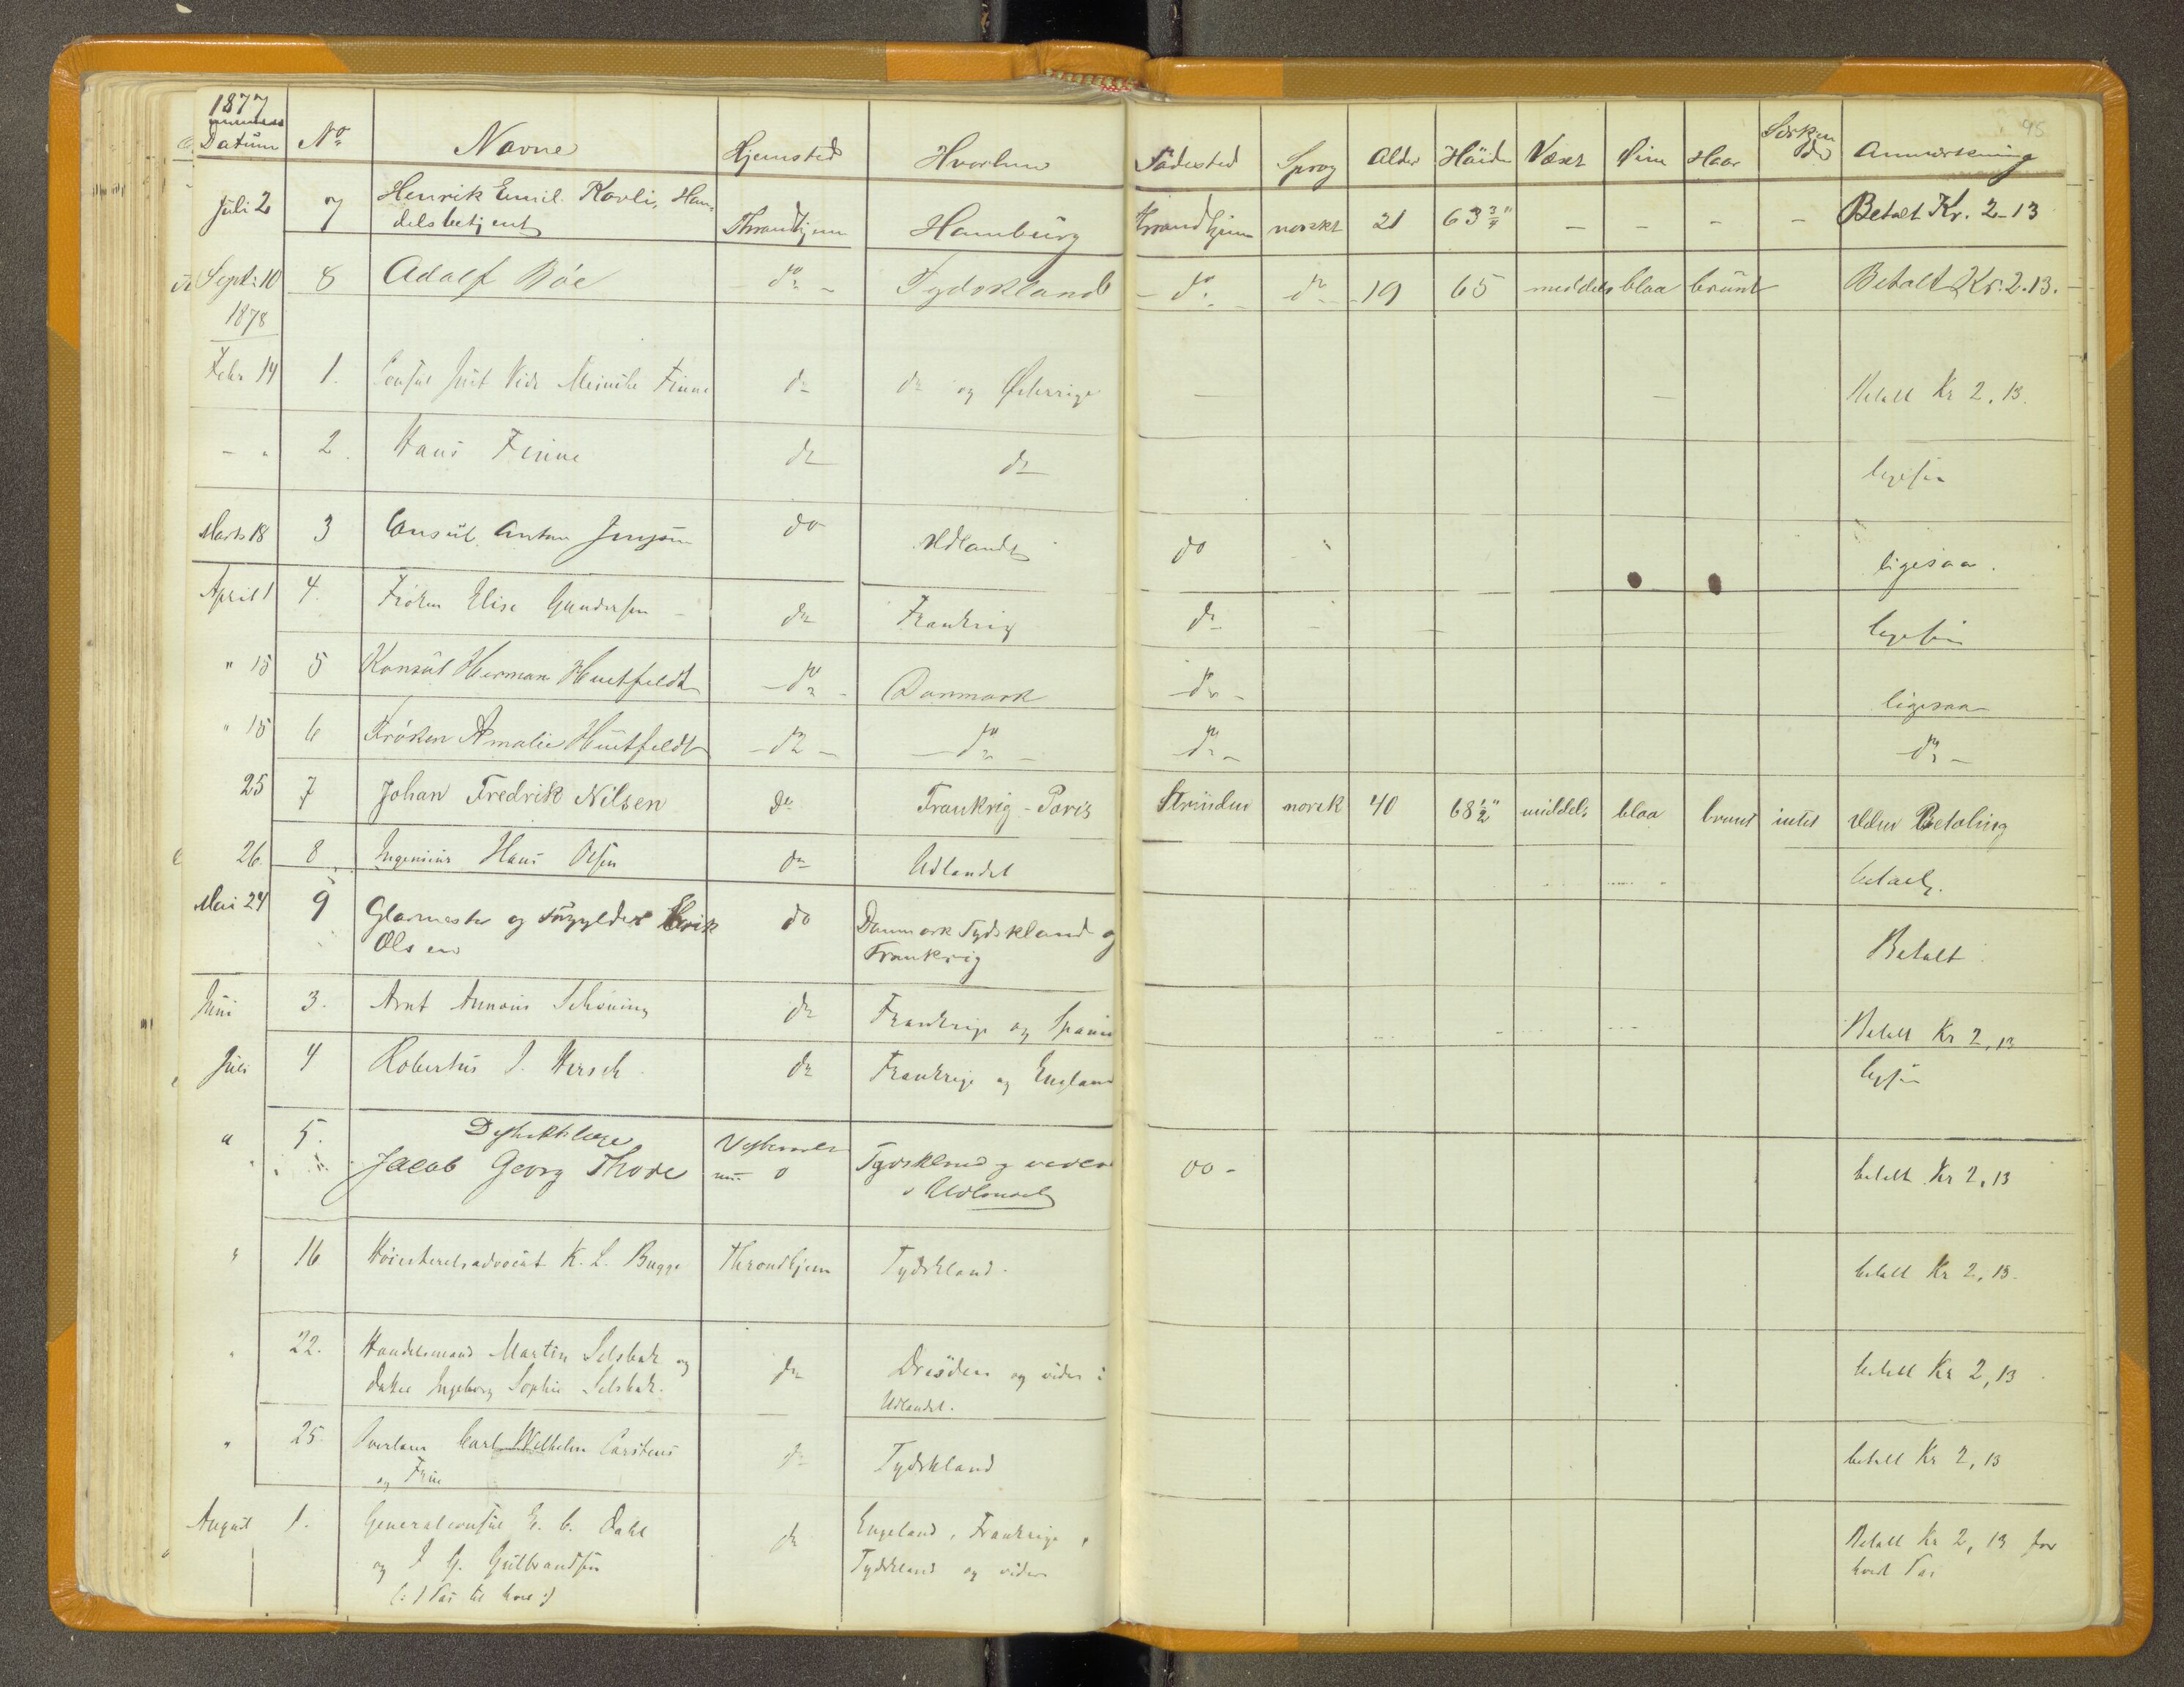 1877
Datum No Navne Hjemsted Hvorhen Födested Sprog Alder Höide Væxt Øine Haar Anmærkning
95
Juli 2 7 Henrik Emil Kavli, Han-
delsbetjent Throndhjem Hamburg Throndhjem norskt 21 63 3/4" - - - - Betalt Kr. 2-13
Sept: 10 8 Adolf Böe - do - Tydskland - do - do 19 65 middels blaa brunt Betalt Kr. 2.13.
1878
Febr 14 1. Consul Finne do do og Østerrige - - Betalt Kr 2,13.
- " 2. Hans Finne do do ligesaa
Marts 18 3 Consul Anton Jenssen do Udlandet do " ligesaa.
April 1 4. Frøken Elise Gundersen do Frankrig do ligesaa
" 15 5 Konsul Herman Huitfeldt - do - Danmark - do - ligesaa
" 15 6 Frøken Amalie Huitfeldt - do - - do - do - - do -
25 7 Johan Fredrik Nilsen do Frankrig - Paris Strinden norsk 40 68 1/2" middels blaa brunt intet uden Betaling
26 8 Ingeniör Hans Olsen do Udlandet
Mai 24 9 Glarmester og forgylder Erik
Olsen do Danmark Tydskland og
Frankrig Betalt
Juni 3. Arnt Schöning do Frankrige og Spanien Betalt Kr 2,13
Juli 4 Robertus J. Hirsch do Frankrige og England ligesaa
" 5. Distriktslæge
Jacob Georg Thode Tydskland og videre
i Udlandet do - betalt Kr 2,13
" 16 Höiesteretsadvocat K. L. Bugge Throndhjem Tydskland. betalt Kr 2,13.
" 22. Handelsmand Martin Selsbak og
Datter Ingeborg Sophie Selsbak. do Dresden og videre i
Udlandet. betalt Kr 2,13
" 25. Carl Wilhelm Carstens
og Frue do Tydskland betalt Kr 2,13
August 1. Generalconsul E. C. Dahl
og I G. Gulbrandsen
(: 1 Pas til hver :) do Engeland, Frankrige,
Tydskland og videre Betalt Kr 2,13 for
hvert Pas